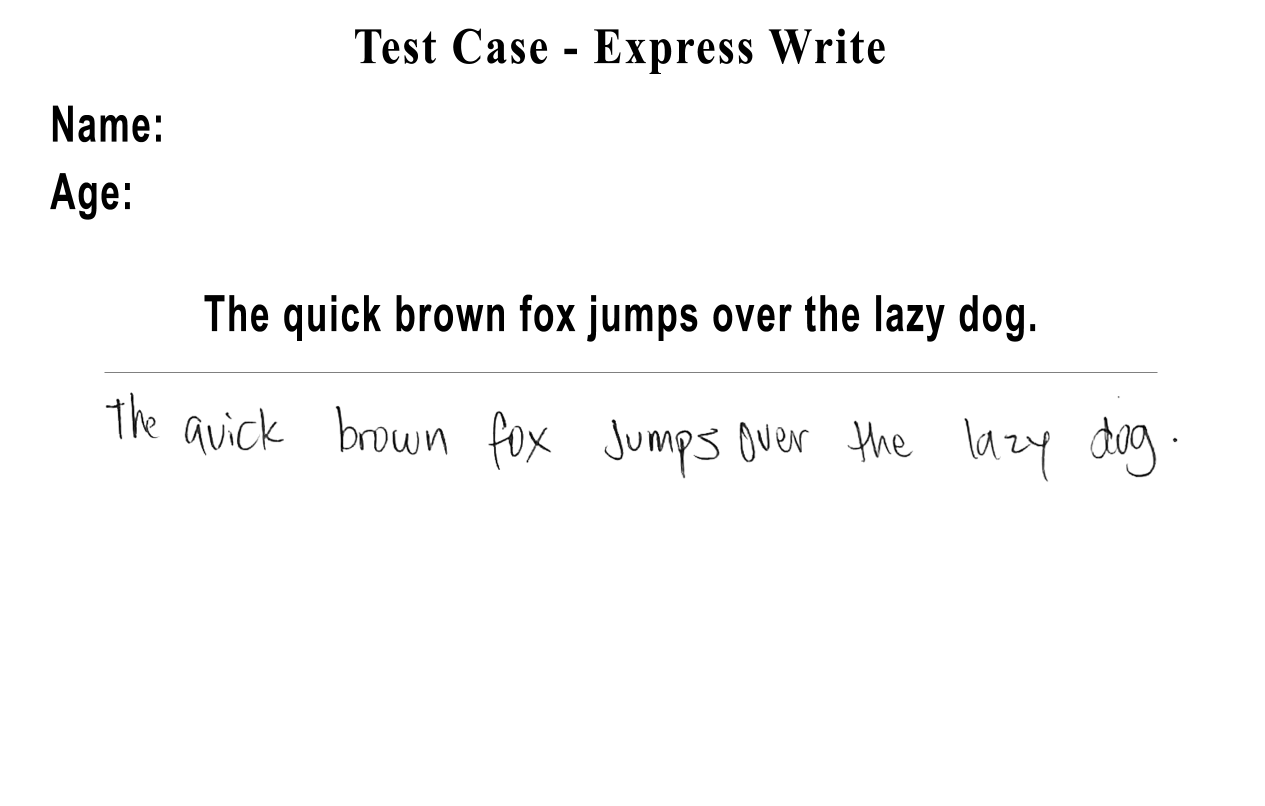 Test Case - Express Write
Name:
Age:
The quick brown fox jumps over the lazy dog.
The quick brown fox Jumps over the lazy dog.